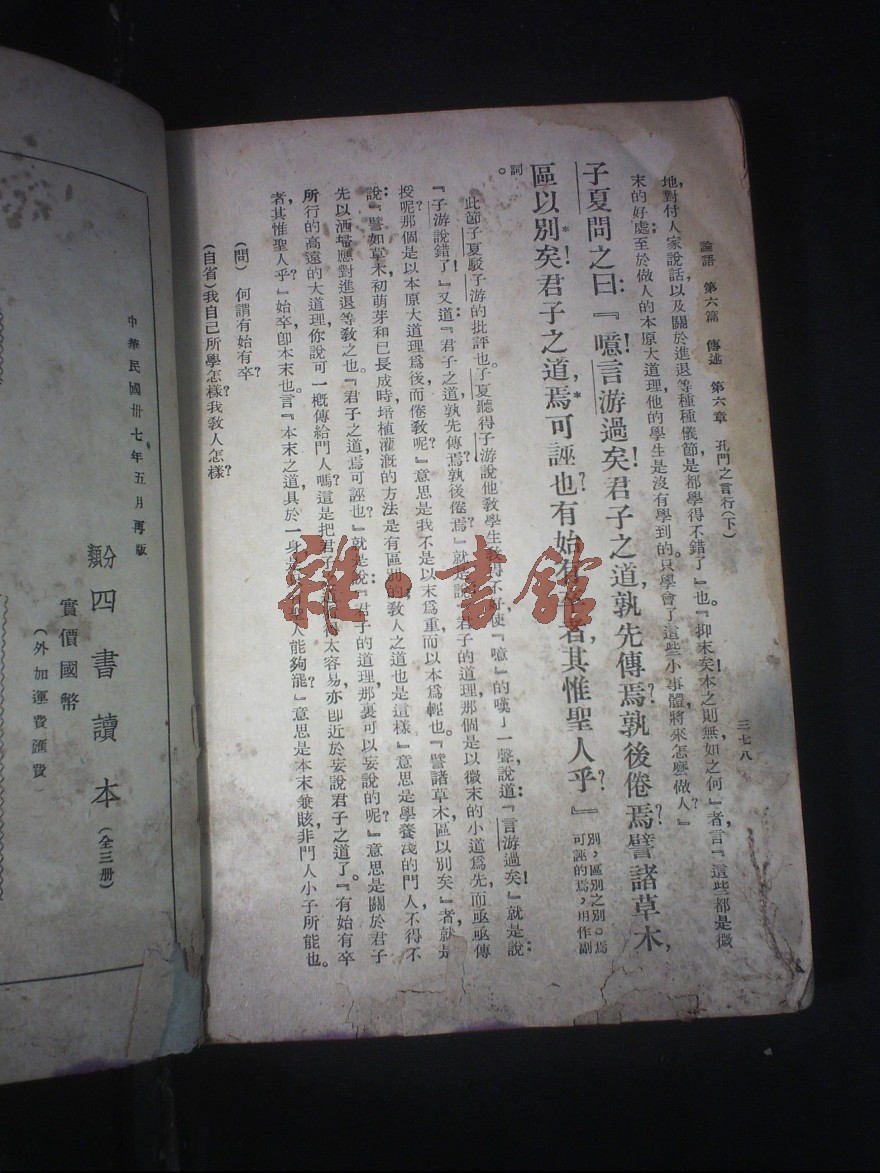 論語 第六篇 傳述 第六章 孔門之言行(下)
三七八
地對付人家說話以及關於進退等種種儀節是都學得不錯了』也。『抑末矣！本之則無如之何』者言『這些都是微
末的好處；至於做人的本原大道理，他的學生是沒有學到的。只學會了這些小事體，將來怎麼做人？』
子夏問之曰：『噫！言游過矣！君子之道，孰先傳焉？孰後倦焉？譬諸草木，
區以別*矣！君子之道，焉*可誣也？有始有卒者，其惟聖人乎？』
別，區別之別。焉
可誣的焉，用作副
詞。
此節子夏駁子游的批評也。子夏聽得子游說他教學生教得不好，便『噫』的嘆了一聲，說道：『言游過矣！』就是說：
『子游說錯了！』又道：『君子之道孰先傳焉？孰後倦焉？』就是說：『君子的道理，那個是以微末的小道為先而亟亟傳
授呢？那個是以本原大道理為後而倦教呢？』意思是我不是以末為重而以本為輕也。『譬諸草木區以別矣』者，就是
說：『譬如草木，初萌芽和已長成時，培植灌漑的方法是有區別的；教人之道也是這樣。』意思是學養淺的門人，不得不
先以洒埽應對進退等教之也。『君子之道，焉可誣也？』就是說：『君子的道理，那裏可以妄說的呢？』意思是關於君子
所行的高遠的大道理，你說可一概傳給門人嗎？這是把君子太容易，亦卽近於妄說君子之道了。『有始有卒
者，其惟聖人乎？』始卒卽本末也。言『本末之道具於一身，聖人能夠罷？』意思是本末兼賅，非門人小子所能也。
(問) 何謂有始有卒？
(自省) 我自己所學怎樣？我教人怎樣？
中華民國卅七年五月再版
分類 四書讀本 (全三册)
實價國幣
(外加運費匯費)
雜·書館